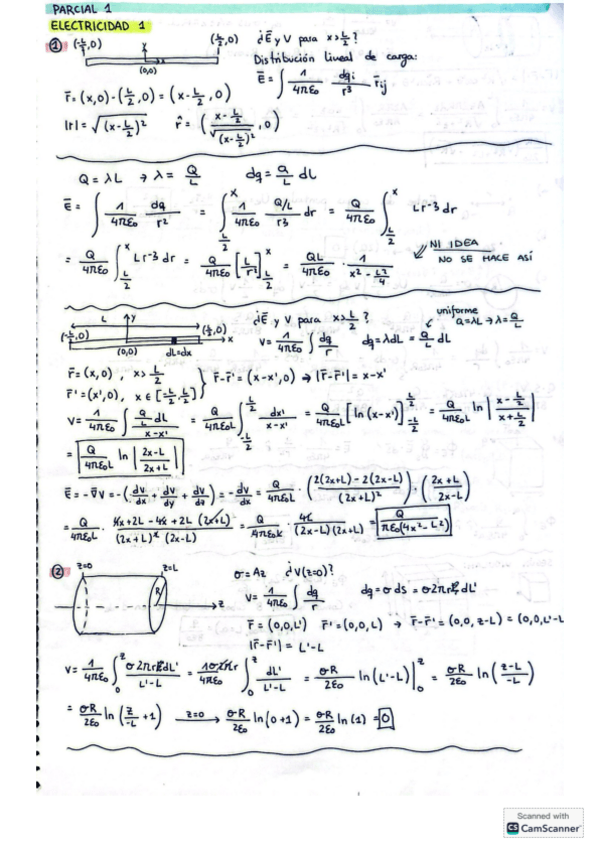 PARCIAL 1
ELECTRICIDAD 1
① (-L/2,0) x (0,0) (L/2,0) ¿Ē y V para x>L/2?
Distribución lineal de carga:
Ē = ∫ 1/4πε₀ · dqi/r³ r̄ij
r̄ = (x,0) - (L/2,0) = (x-L/2,0)
|r| = √(x-L/2)² r̂ = ( x-L/2 / √(x-L/2)² ,0)
Q = λL → λ = Q/L dq = Q/L dL
Ē = ∫ 1/4πε₀ dq/r² = ∫_{L/2}^{x} 1/4πε₀ Q/L / r³ dr = Q/4πε₀ ∫_{L/2}^{x} Lr⁻³ dr
= Q/4πε₀ ∫_{L/2}^{x} Lr⁻³ dr = Q/4πε₀ [L/r²]_{L/2}^{x} = QL/4πε₀ · 1/x² - L²/4
NI IDEA
NO SE HACE ASÍ
L y (-L/2,0) (L/2,0) x (0,0) dL=dx
¿Ē y V para x>L/2?
uniforme
Q=λL → λ=Q/L
V = 1/4πε₀ ∫ dq/r dq = λdL = Q/L dL
r̄ = (x,0) , x>L/2
r̄' = (x',0) , x ∈ [-L/2, L/2] } r̄-r̄' = (x-x',0) → |r̄-r̄'| = x-x'
V = 1/4πε₀ ∫ Q/L dL / x-x' = Q/4πε₀L ∫_{-L/2}^{L/2} dx'/x-x' = Q/4πε₀L [ln(x-x')]_{-L/2}^{L/2} = Q/4πε₀L ln |x-L/2 / x+L/2|
= Q/4πε₀L ln |2x-L / 2x+L|
Ē = -∇V = -(dV/dx + dV/dy + dV/dz) = -dV/dx = Q/4πε₀L · (2(2x+L) - 2(2x-L) / (2x+L)²) · (2x+L / 2x-L)
= Q/4πε₀L · 4x+2L-4x+2L (2x+L) / (2x+L)² (2x-L) = Q/4πε₀L · 4L/(2x-L)(2x+L) = Q/πε₀(4x²-L²)
② z=0 z=L R z σ = Az ¿V(z=0)?
V = 1/4πε₀ ∫ dq/r dq = σ ds = σ2πR dL'
r̄ = (0,0,L') r̄' = (0,0,L) → r̄-r̄' = (0,0,z-L) = (0,0,L'-L
|r̄-r̄'| = L'-L
V = 1/4πε₀ ∫_0^z σ2πR dL' / L'-L = 1σ2πr/4πε₀ ∫_0^z dL'/L'-L = σR/2ε₀ ln(L'-L)|_0^z = σR/2ε₀ ln(z-L/-L)
= σR/2ε₀ ln(z/-L +1) z=0 → σR/2ε₀ ln(0+1) = σR/2ε₀ ln(1) = 0
Scanned with
CS CamScanner